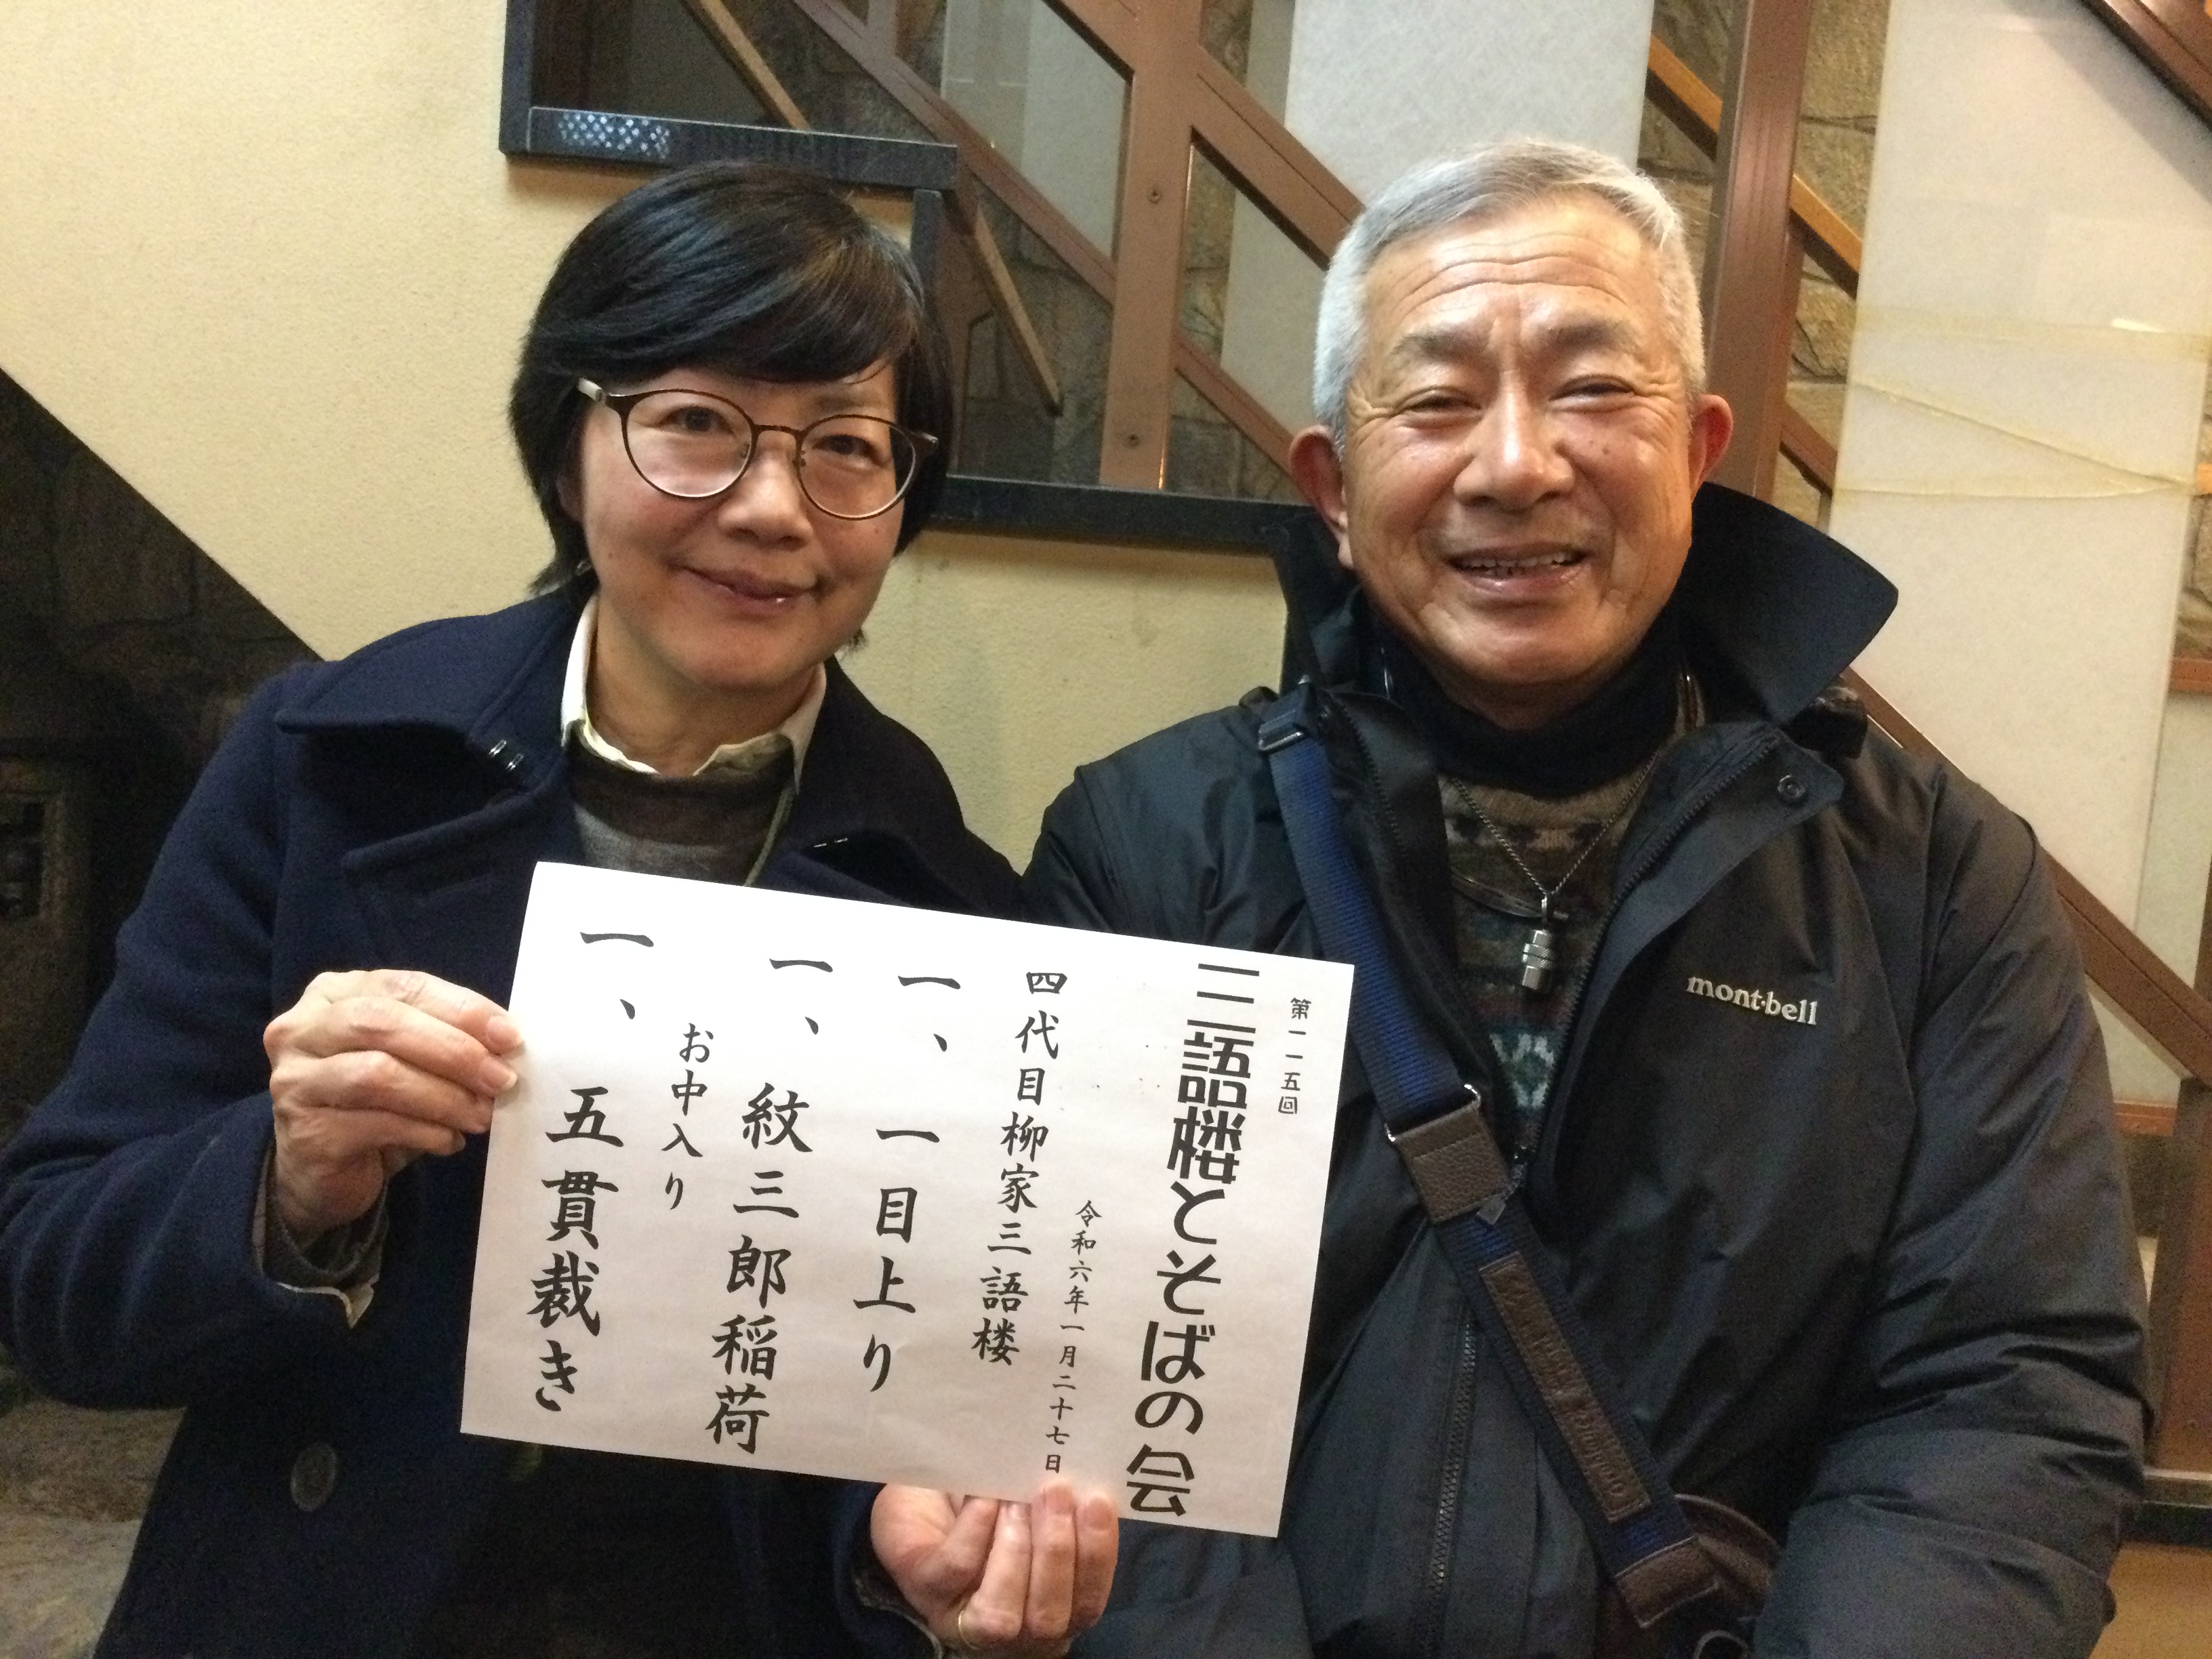 第一一五回
三語楼とそばの会
令和六年一月二十七日
四代目柳家三語楼
一、一目上り
一、紋三郎稲荷
お中入り
一、五貫裁き
mont·bell